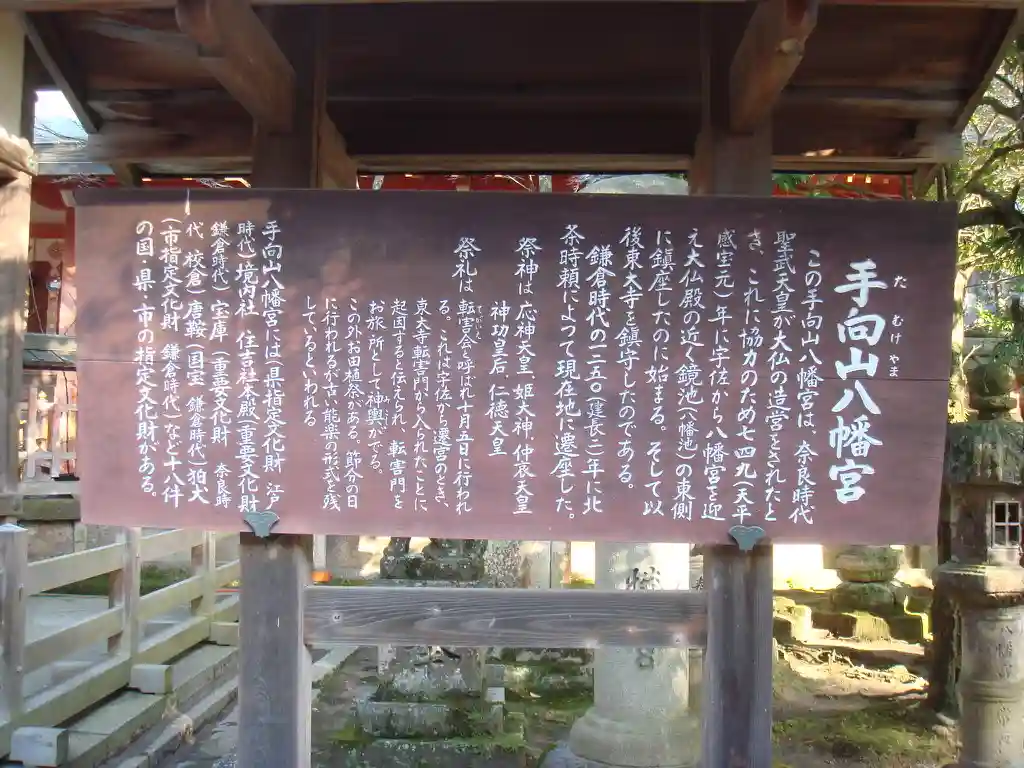 手向山八幡宮
た
むけ
やま
この手向山八幡宮は、奈良時代
聖武天皇が大仏の造営をされたと
き、これに協力のため七四九（天平
感宝元）年に宇佐から八幡宮を迎
え大仏殿の近く鏡池（八幡池）の東側
に鎮座したのに始まる。そして以
後東大寺を鎮守したのである。
鎌倉時代の一二五〇（建長二）年に北
条時頼によって現在地に遷座した。
祭神は 応神天皇、姫大神、仲哀天皇
神功皇后、仁徳天皇
祭礼は 転害会と呼ばれ十月五日に行われ
てがいえ
る。これは宇佐から遷宮のとき、
東大寺転害門から入られたことに
起因すると伝えられ、転害門を
お旅所として神輿がでる。
みこし
この外お田植祭がある。節分の日
に行われるが古い能楽の形式を残
しているといわれる
手向山八幡宮には（県指定文化財 江戸
時代）境内社 住吉社本殿（重要文化財
鎌倉時代）宝庫（重要文化財 奈良時
代 校倉）唐鞍（国宝 鎌倉時代）狛犬
（市指定文化財 鎌倉時代）など十八件
の国・県・市の指定文化財がある。